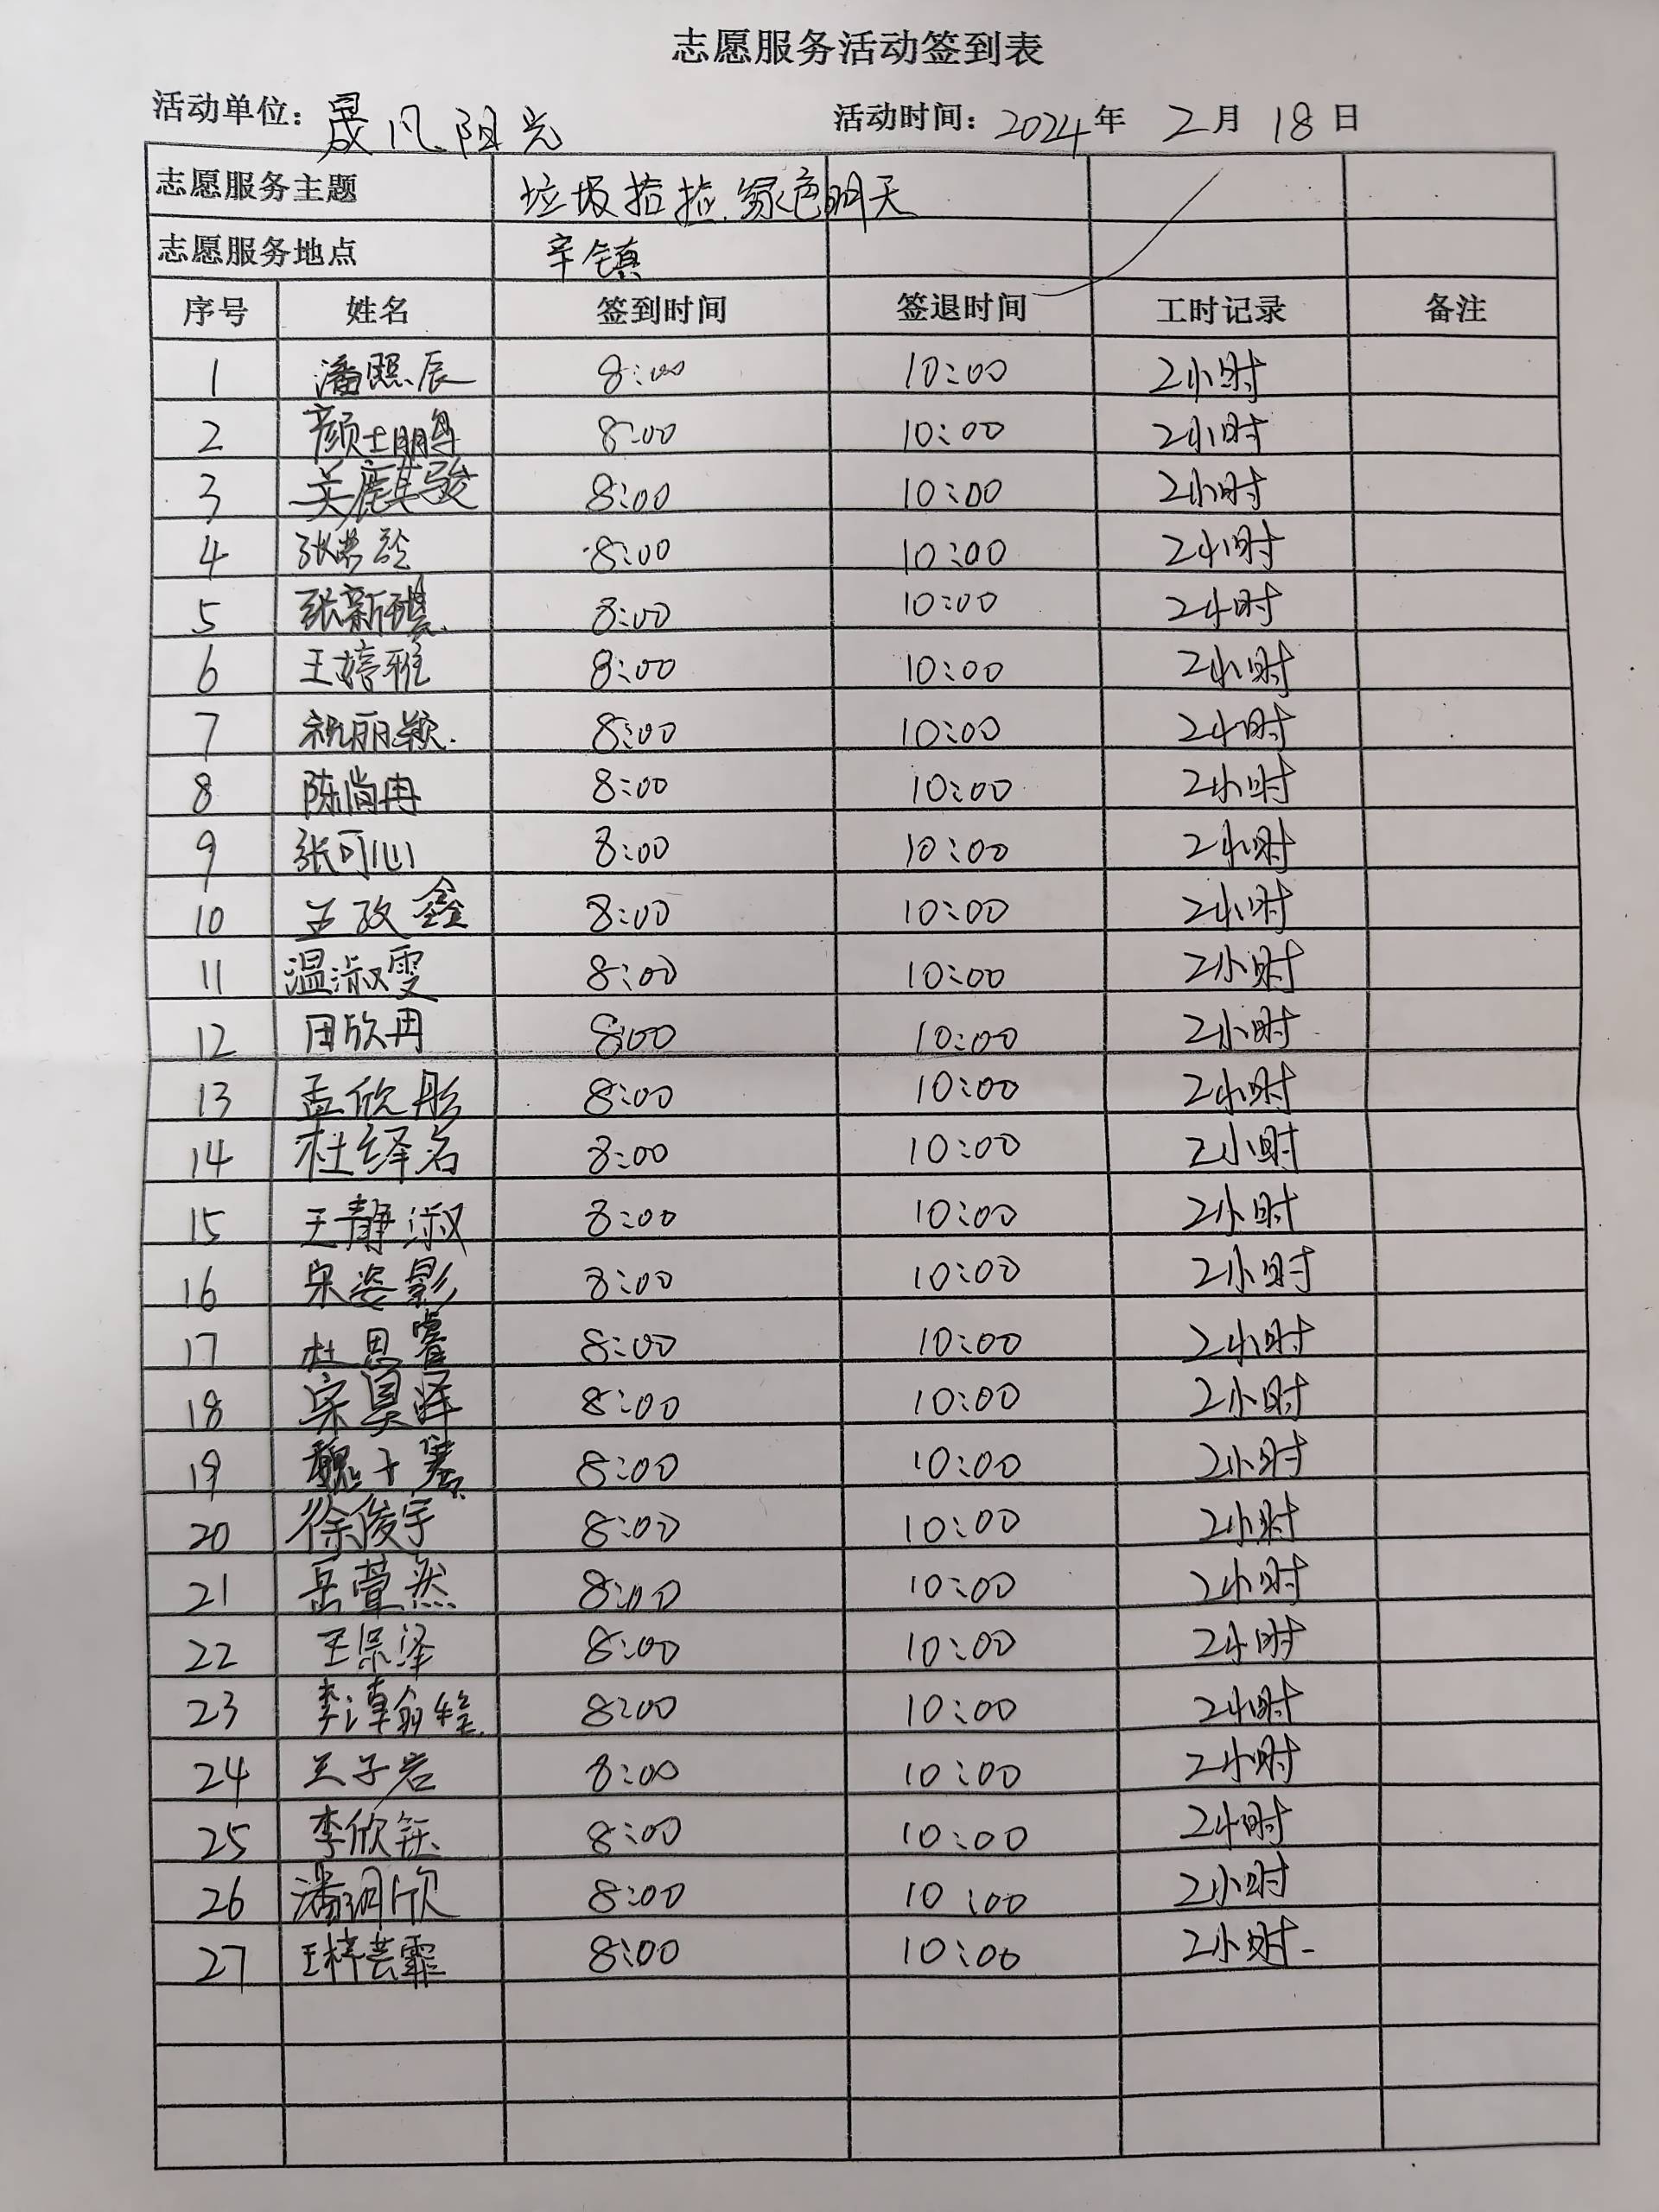 志愿服务活动签到表
活动单位：晟凡阳光 活动时间：2024年 2月 18日
志愿服务主题 垃圾捡捡 绿色明天
志愿服务地点 辛镇
序号 姓名 签到时间 签退时间 工时记录 备注
1 潘照辰 8:00 10:00 2小时
2 颜士鹏 8:00 10:00 2小时
3 8:00 10:00 2小时
4 8:00 10:00 2小时
5 张新祺 8:00 10:00 2小时
6 王婷雅 8:00 10:00 2小时
7 祝丽颖 8:00 10:00 2小时
8 陈尚冉 8:00 10:00 2小时
9 张可心 8:00 10:00 2小时
10 孟政鑫 8:00 10:00 2小时
11 温淑雯 8:00 10:00 2小时
12 田欣冉 8:00 10:00 2小时
13 孟欣彤 8:00 10:00 2小时
14 杜绎名 8:00 10:00 2小时
15 王静淑 8:00 10:00 2小时
16 宋姿影 8:00 10:00 2小时
17 杜思睿 8:00 10:00 2小时
18 宋昊泽 8:00 10:00 2小时
19 8:00 10:00 2小时
20 徐俊宇 8:00 10:00 2小时
21 岳萱然 8:00 10:00 2小时
22 8:00 10:00 2小时
23 8:00 10:00 2小时
24 王子岩 8:00 10:00 2小时
25 李欣钰 8:00 10:00 2小时
26 8:00 10:00 2小时
27 王梓芸霏 8:00 10:00 2小时